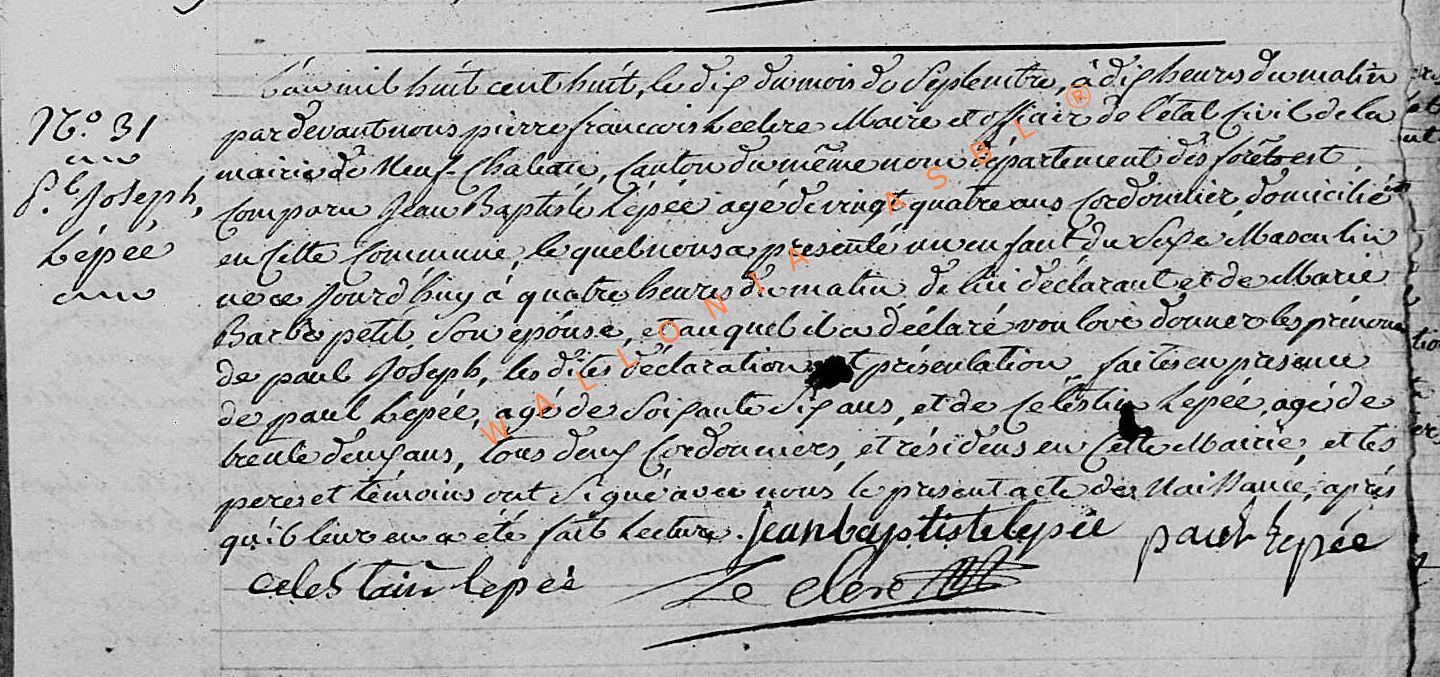 L'an mil huit cent huit, le dix du mois de Septembre, à dix heures du matin
N.° 31
pardevant nous pierre francois Leclere Maire et officier de l'état Civil de la
mairie de Neuf-Chateau, Canton du même nom département des forêts est
P.l Joseph,
Comparu Jean Baptiste Lépée agé de vingt quatre ans Cordonnier, domicilié
Lépée
en Cette Commune, lequel nous a présenté un enfant du Sexe Masculin
né ce Jourd'huy à quatre heures du matin de lui déclarant et de Marie
Barbe petit, Son épouse, et auquel il a déclaré vouloir donner les prénoms
de paul Joseph, les dites déclaration et présentation, faites en presence
de paul Lepée, agé de Soixante Six ans, et de Celéstin Lepée, agé de
trente deux ans, tous deux Cordonniers, et résidens en Cette Mairie, et les
peres et témoins ont Signé avec nous le present acte de Naissance, après
qu'il leur en a été fait Lecture. Jean baptiste lepée paul Lepée
celestain lepée Le clere
WALLONIA ASBL ®